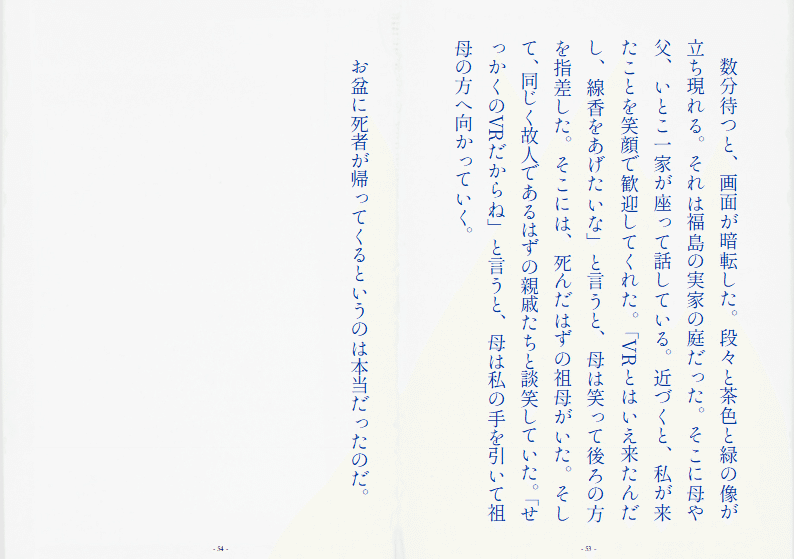 数分待つと、画面が暗転した。段々と茶色と緑の像が
立ち現れる。それは福島の実家の庭だった。そこに母や
父、いとこ一家が座って話している。近づくと、私が来
たことを笑顔で歓迎してくれた。「VRとはいえ来たんだ
し、線香をあげたいな」と言うと、母は笑って後ろの方
を指差した。そこには、死んだはずの祖母がいた。そし
て、同じく故人であるはずの親戚たちと談笑していた。「せ
っかくのVRだからね」と言うと、母は私の手を引いて祖
母の方へ向かっていく。
- 53 -
お盆に死者が帰ってくるというのは本当だったのだ。
- 54 -